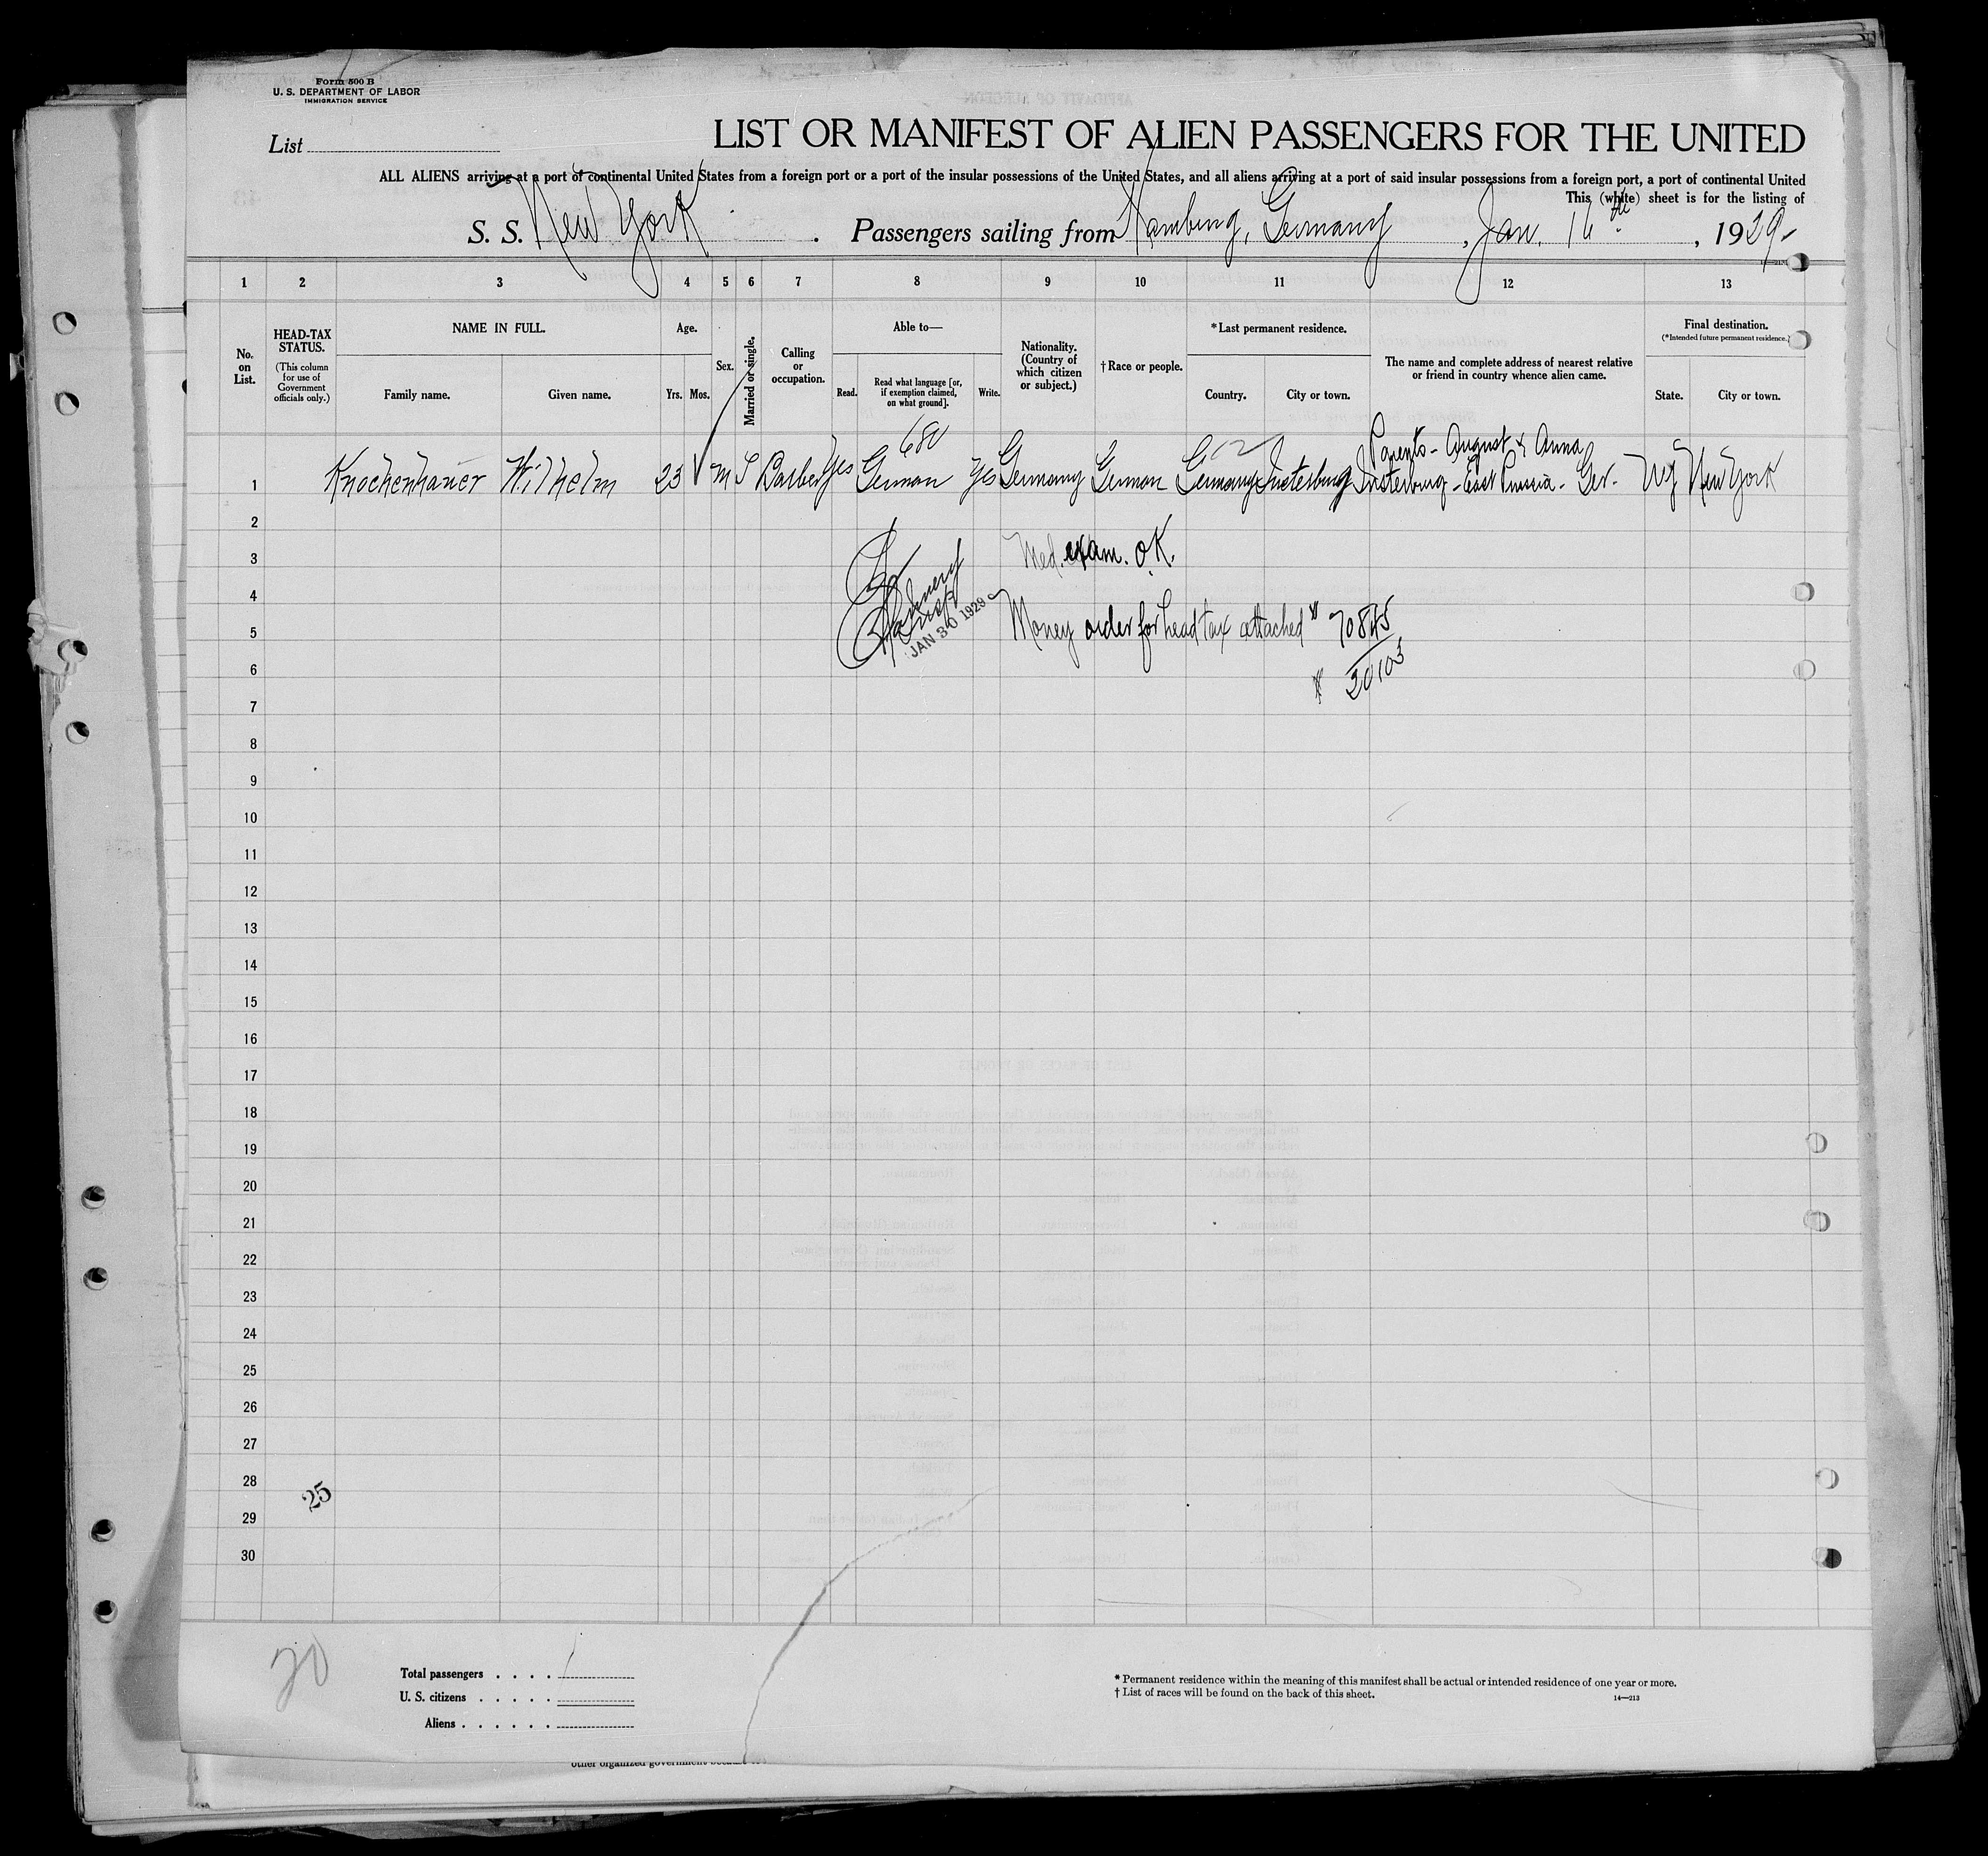 Form 500 B
U. S. DEPARTMENT OF LABOR
IMMIGRATION SERVICE
List
LIST OR MANIFEST OF ALIEN PASSENGERS FOR THE UNITED
ALL ALIENS arriving at a port of continental United States from a foreign port or a port of the insular possessions of the United States, and all aliens arriving at a port of said insular possessions from a foreign port, a port of continental United
This (white) sheet is for the listing of
S. S. New York . Passengers sailing from Hamburg, Germany , Jan. 16th , 1929
1 2 3 4 5 6 7 8 9 10 11 12 13
No. on List.
HEAD-TAX STATUS.
(This column for use of Government officials only.)
NAME IN FULL.
Family name. Given name.
Age.
Yrs. Mos.
Sex.
Married or single.
Calling or occupation.
Able to—
Read. Read what language [or, if exemption claimed, on what ground]. Write.
Nationality. (Country of which citizen or subject.)
† Race or people.
* Last permanent residence.
Country. City or town.
The name and complete address of nearest relative or friend in country whence alien came.
Final destination.
(* Intended future permanent residence.)
State. City or town.
680
Parents - August & Anna
1 Knochenhauer Wilhelm 23 M S Barber Yes German Yes Germany German Germany Insterburg Insterburg - East Prussia - Ger. NY New York
2
3 Med. exam. O.K.
4
5 Money order for head tax attached # 70845
JAN 30 1929
6 # 30103
7
8
9
10
11
12
13
14
15
16
17
18
19
20
21
22
23
24
25
26
27
28
25
29
30
20
Total passengers . . . . 1
U. S. citizens . . . . .
Aliens . . . . . .
* Permanent residence within the meaning of this manifest shall be actual or intended residence of one year or more.
† List of races will be found on the back of this sheet.
14—213
other organized government